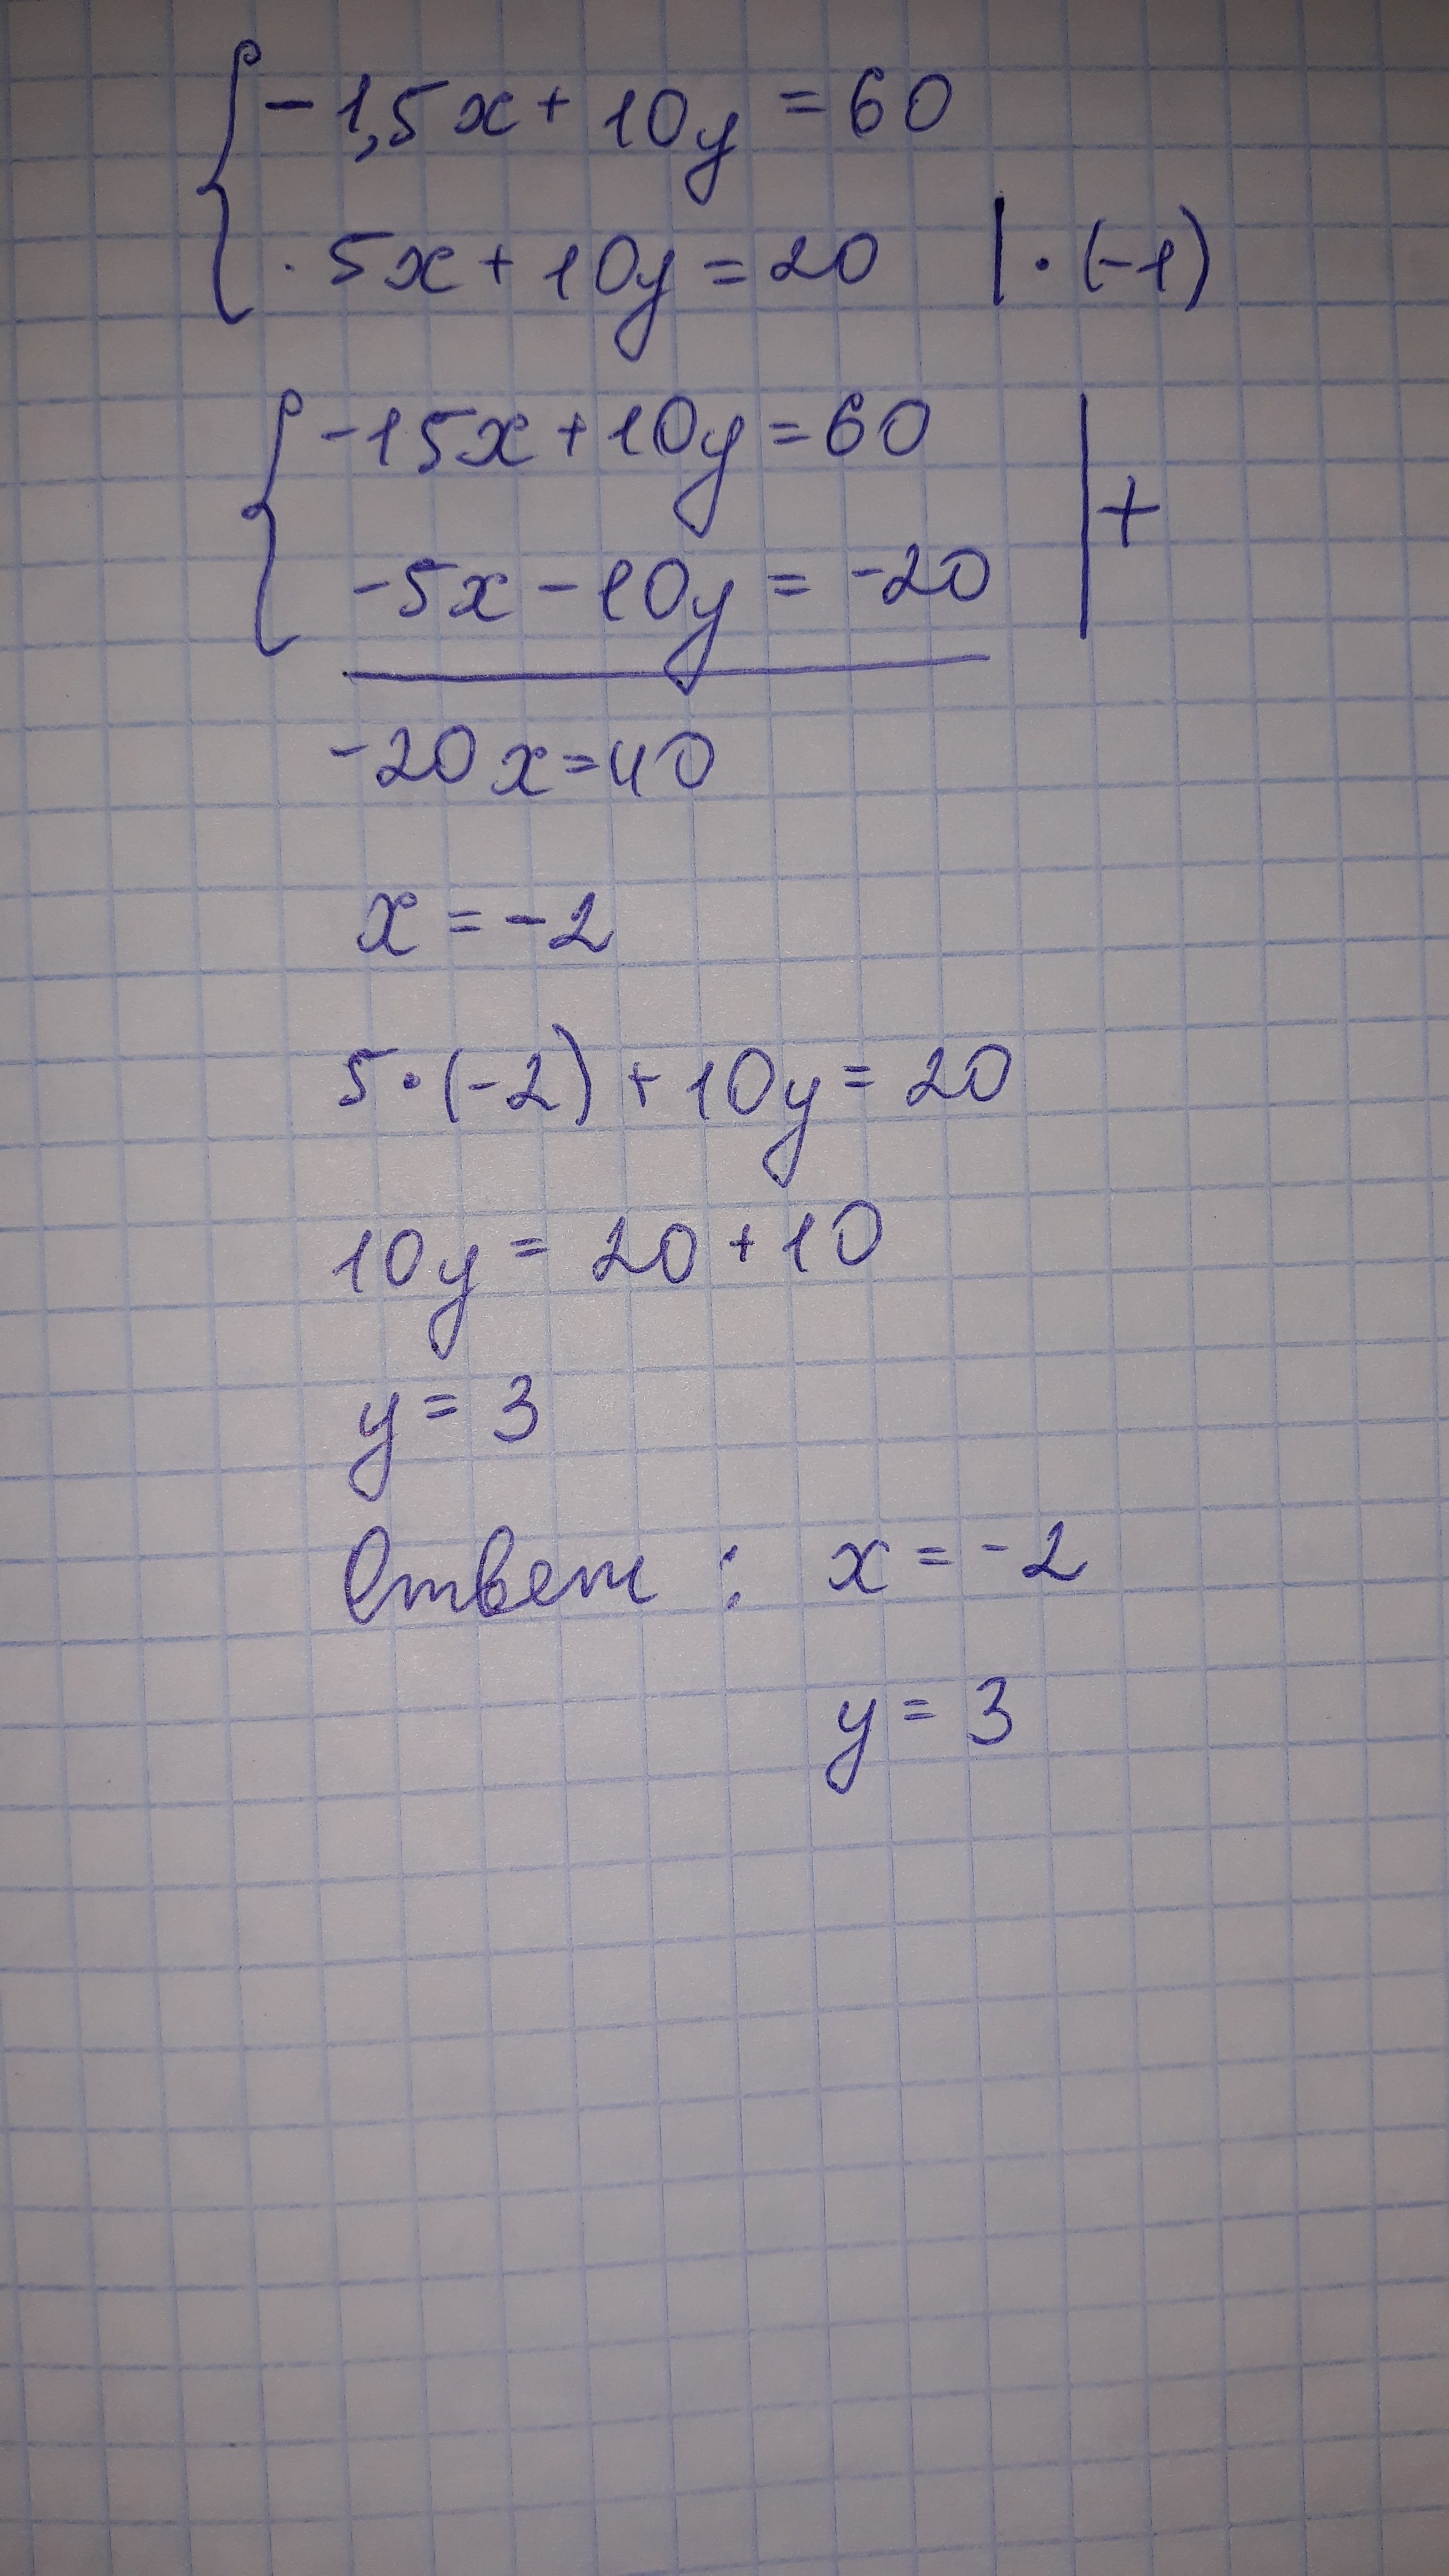 -1,5x + 10y = 60
5x + 10y = 20 | · (-1)
-15x + 10y = 60
-5x - 10y = -20 | +
-20x = 40
x = -2
5 · (-2) + 10y = 20
10y = 20 + 10
y = 3
Ответ : x = -2
y = 3